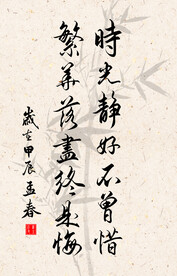 時光静好不曾惜
繁華落盡終是悔
歲在甲辰孟春